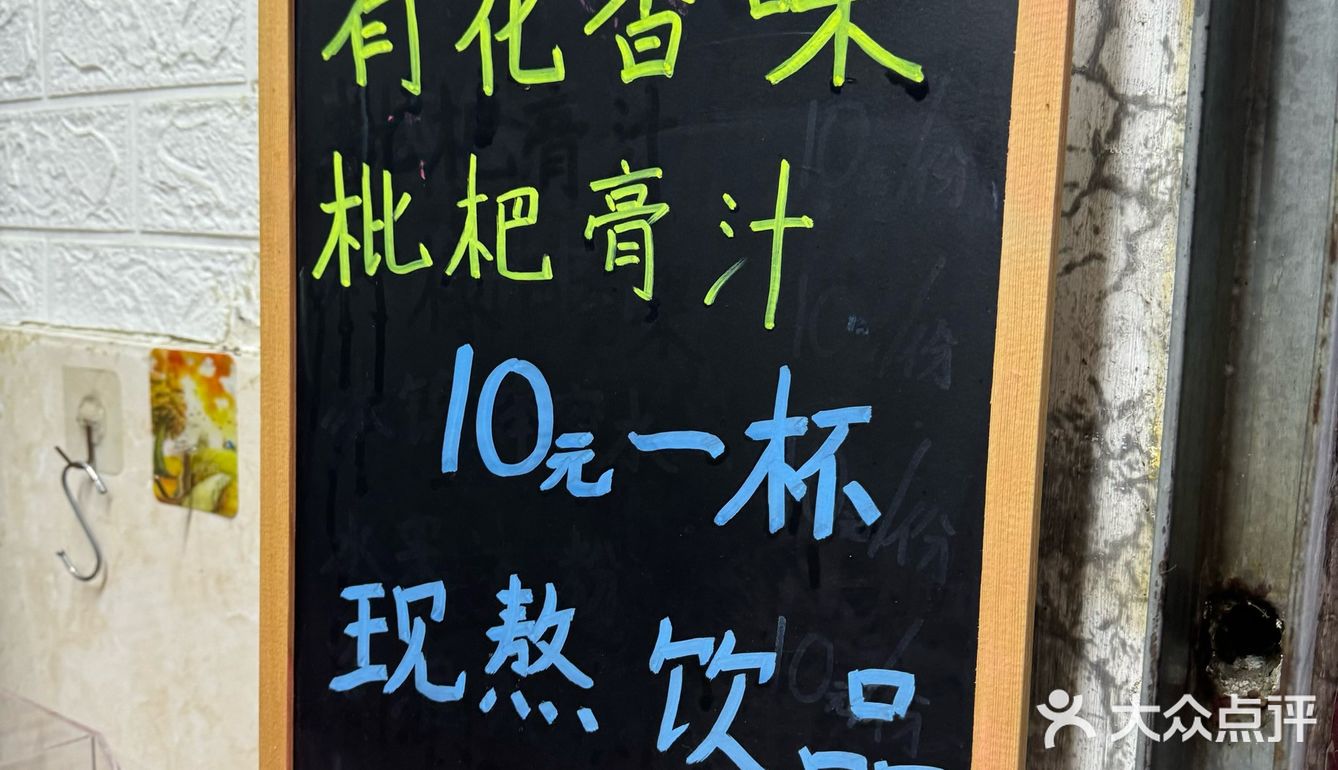 有花香味
枇杷膏汁
10元一杯
现熬饮品
大众点评